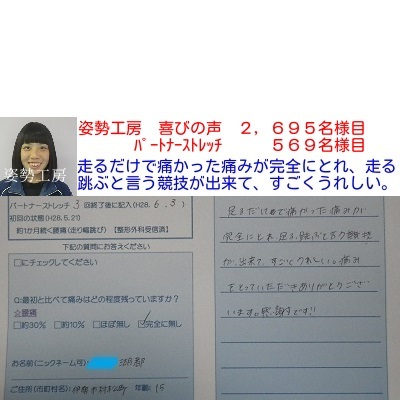 姿勢工房　喜びの声　２，６９５名様目
ﾊﾟｰﾄﾅｰｽﾄﾚｯﾁ　５６９名様目
走るだけで痛かった痛みが完全にとれ、走る
跳ぶと言う競技が出来て、すごくうれしい。
姿勢工房
パートナーストレッチ 3 回終了後に記入(H28. 6. 3 )
初回の状態(H28.5.21)
約1か月続く腰痛(走り幅跳び)【整形外科受信済】
下記の質問にお答えください
□にチェックしてください
Q:最初と比べて痛みはどの程度残っていますか?
☆腰痛
□約30% □約10% □ほぼ無し ☑完全に無し
お名前(ニックネーム可):
ご住所(市町村名): 年齢: 15
走るだけで痛かった痛みが
完全にとれ、走る、跳ぶと言う競技
が、出来て、すごくうれしい。痛み
をとっていただきありがとうござ
います。感謝です!!